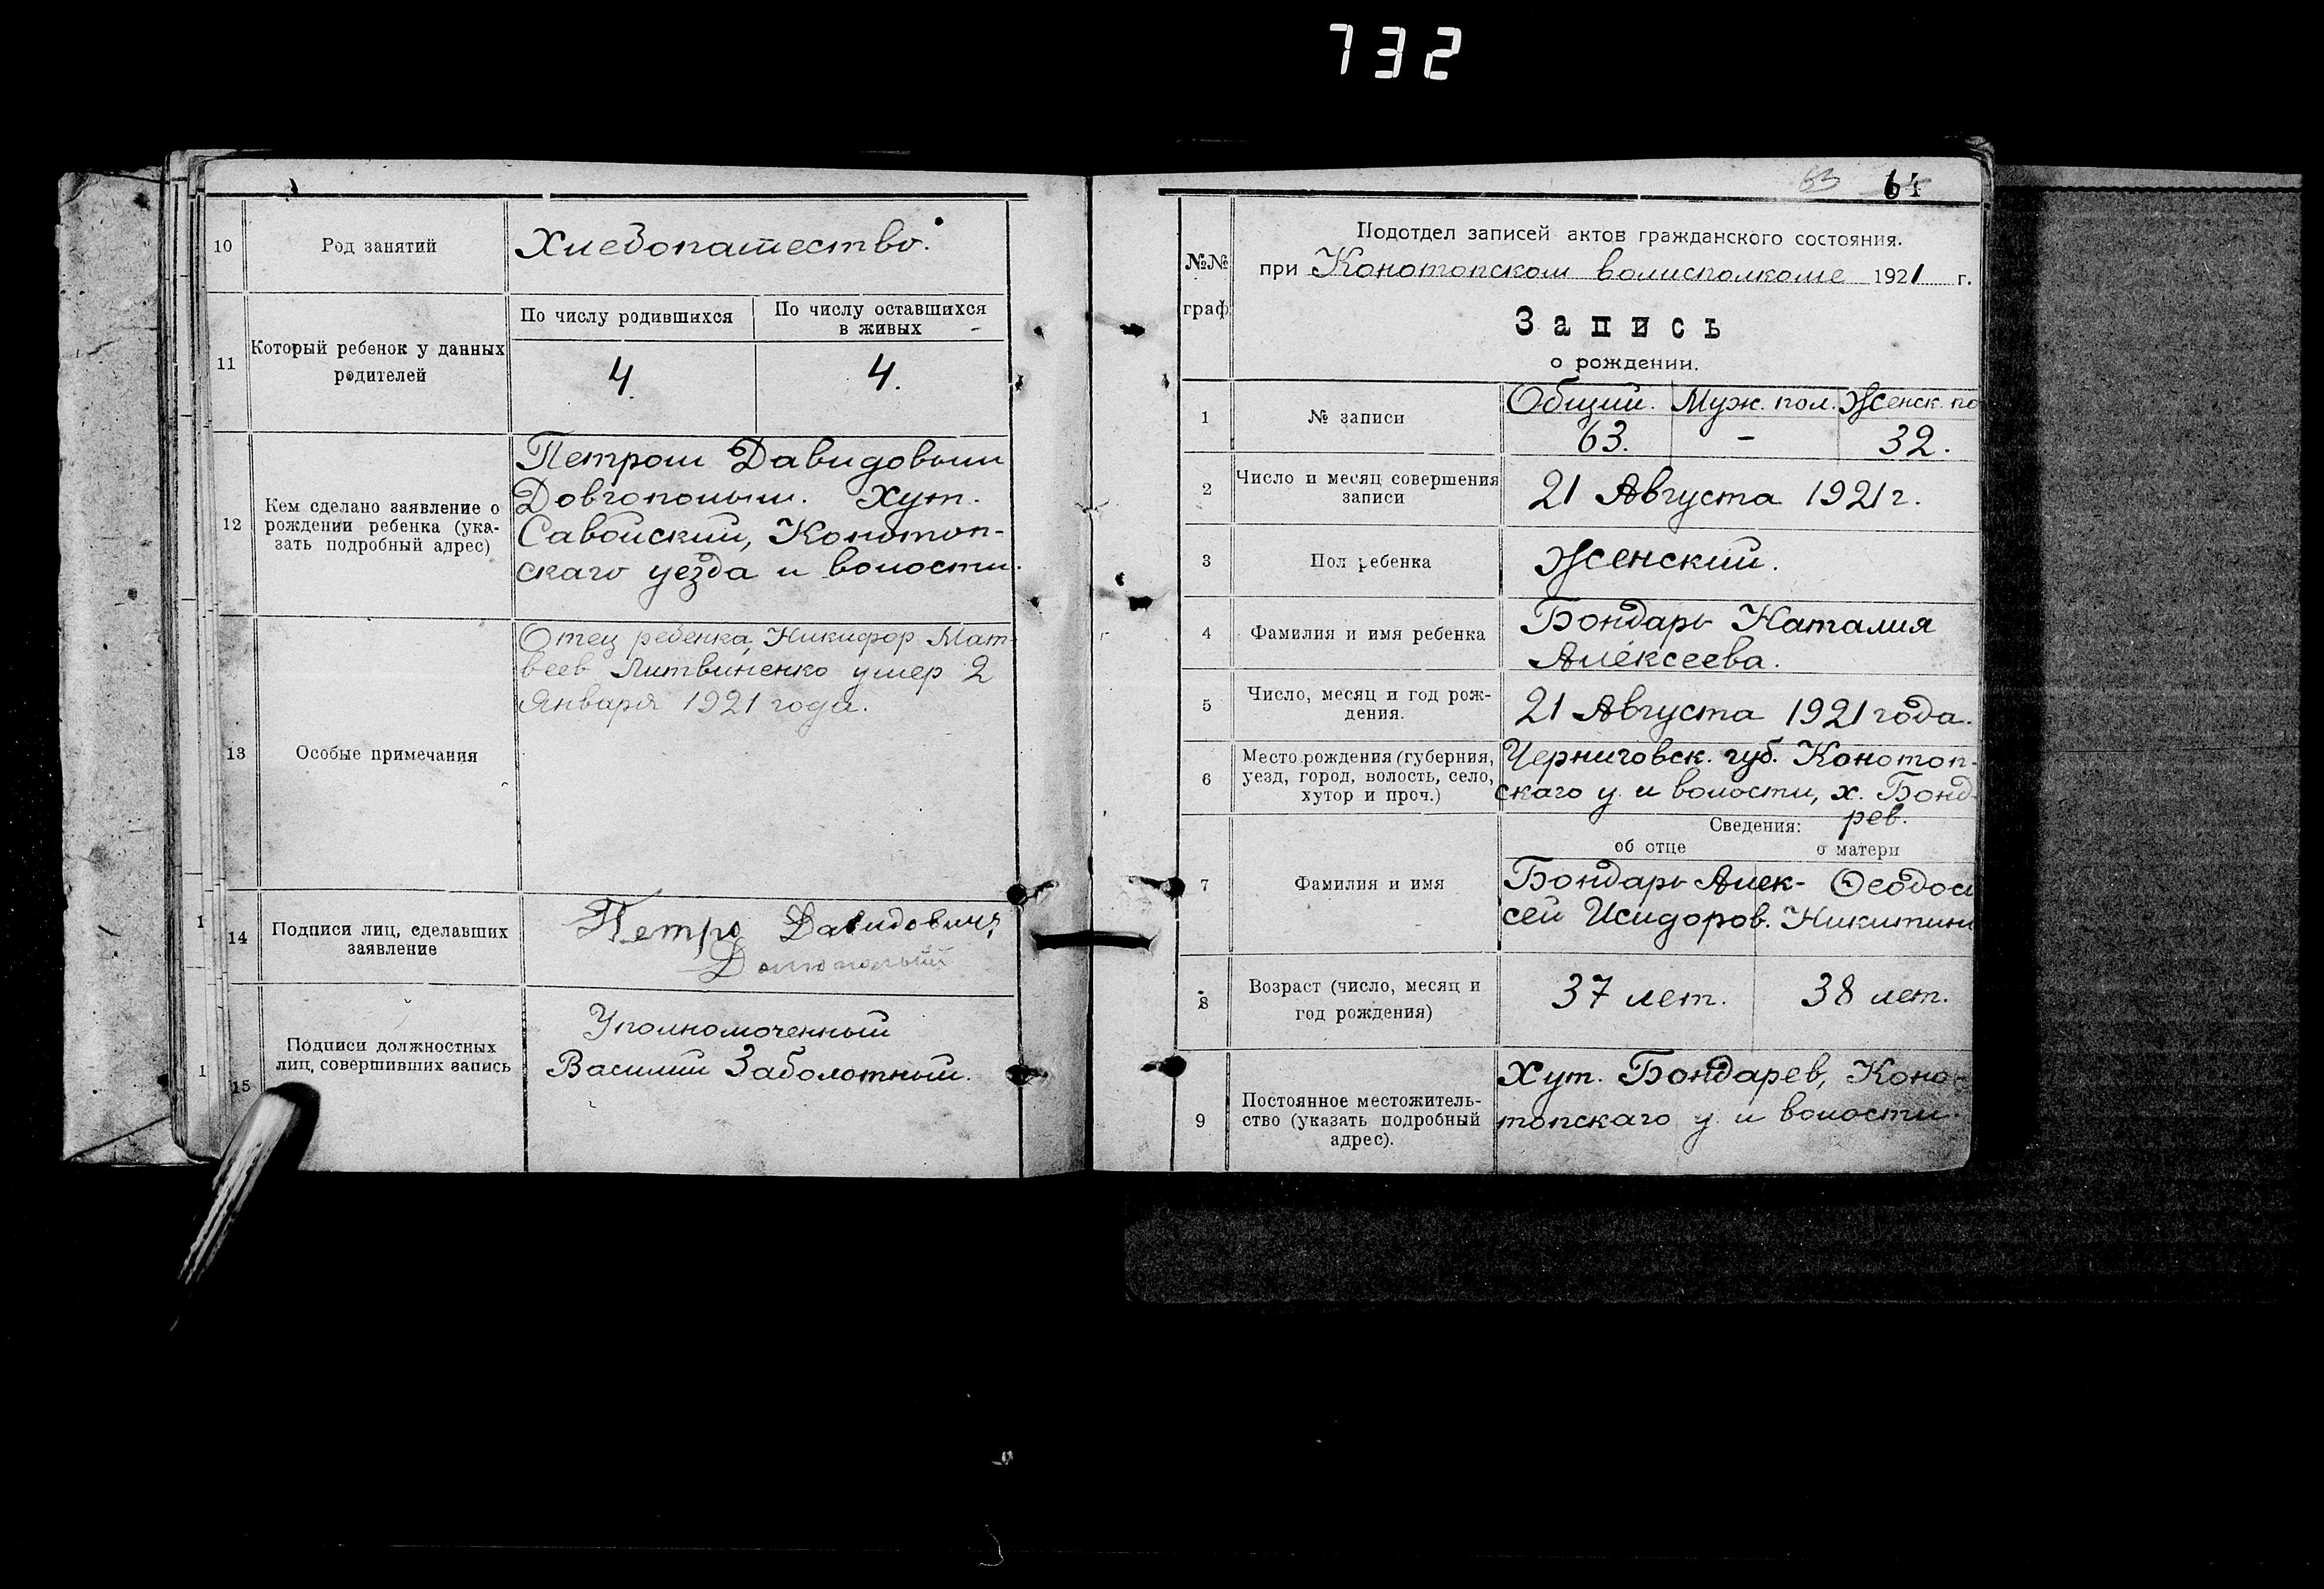 732
10
Род занятий
Хлебопашество.
11
Который ребенок у данных
родителей
По числу родившихся
По числу оставшихся
в живых
4
4.
12
Кем сделано заявление о
рождении ребенка (ука-
зать подробный адрес)
Петром Давидовым
Довгополым. Хут.
Савойский, Конотоп-
скаго уезда и волости.
13
Особые примечания
Отец ребенка, Никифор Мат-
веев Литвиненко умер 2
Января 1921 года.
1
14
Подписи лиц, сделавших
заявление
Петро Давидович
1
15
Подписи должностных
лиц, совершивших запись
Уполномоченный
Василий Заболотный.
63 64
№№
граф
Подотдел записей актов гражданского состояния.
при Конотопском волисполкоме 1921 г.
Запись
о рождении.
1
№ записи
Общий. Муж. пол. Женск. по
63. - 32.
2
Число и месяц совершения
записи
21 Августа 1921 г.
3
Пол ребенка
Женский.
4
Фамилия и имя ребенка
Бондарь Наталия
Алексеева.
5
Число, месяц и год рож-
дения.
21 Августа 1921 года.
6
Место рождения (губерния,
уезд, город, волость, село,
хутор и проч.)
Черниговск. губ. Конотоп-
скаго у. и волости, х. Бонд
рев.
Сведения:
об отце
о матери
7
Фамилия и имя
Бондарь Алек-
сей Исидоров.
Феодос
Никитин
8
Возраст (число, месяц и
год рождения)
37 лет.
38 лет.
9
Постоянное местожитель-
ство (указать подробный
адрес).
Хут. Бондарев, Коно-
топскаго у. и волости.